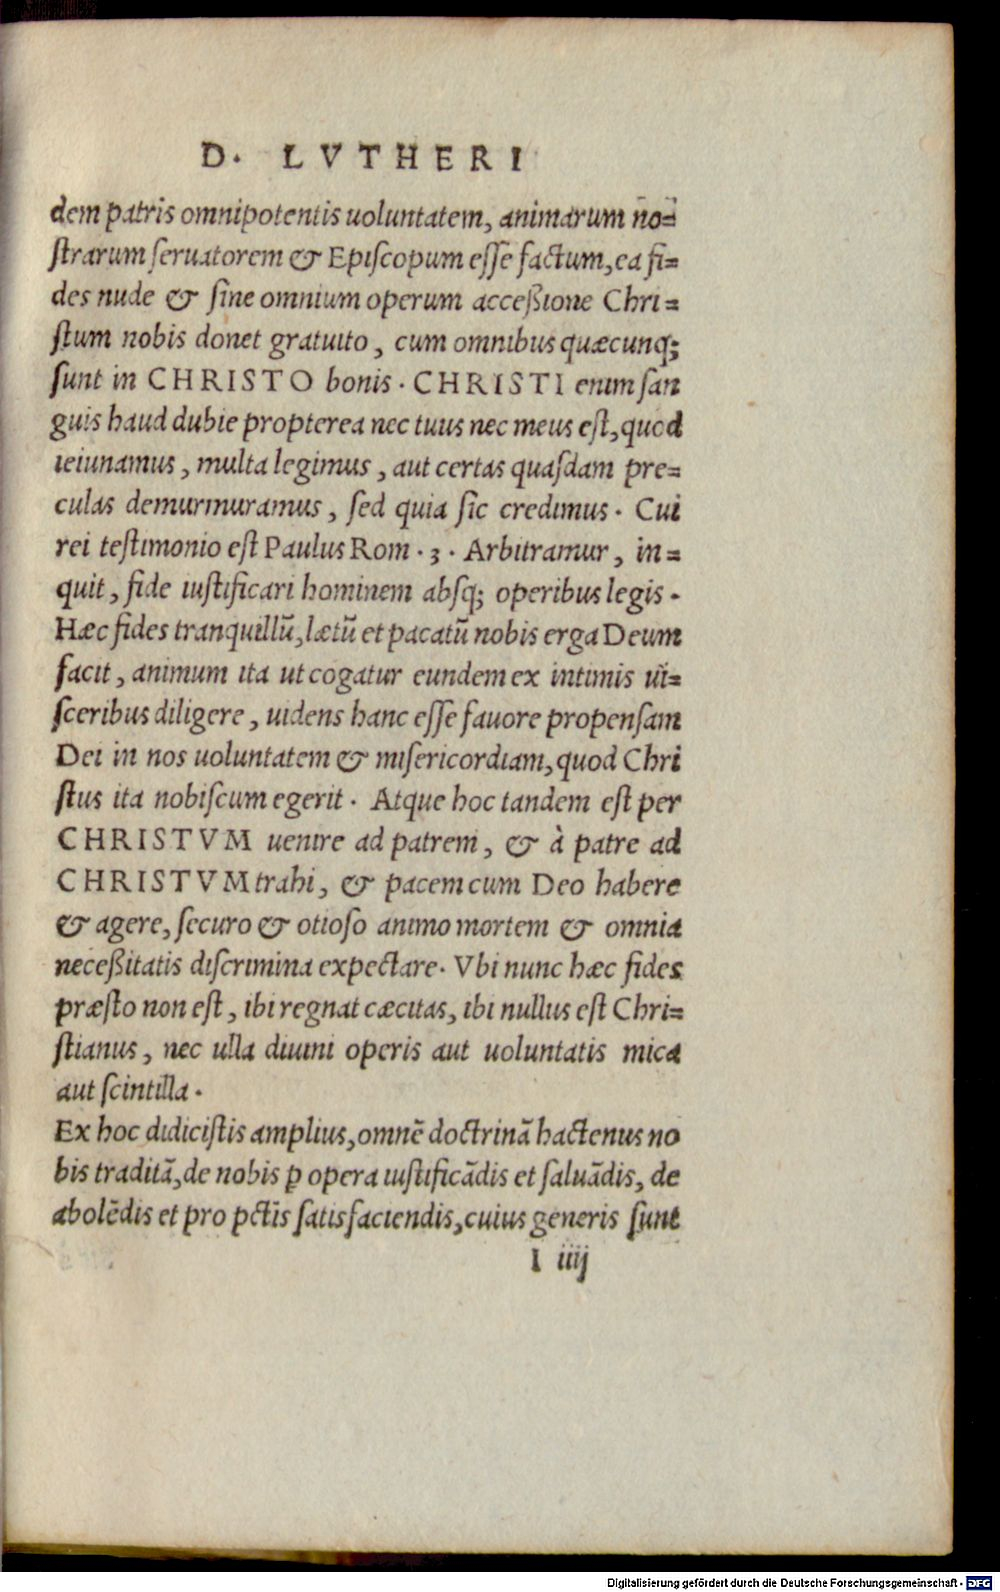 D. LVTHERI
dem patris omnipotentis uoluntatem, animarum no=
ſtrarum ſeruatorem & Epiſcopum eſſe factum, ea fi=
des nude & ſine omnium operum acceßione Chri=
ſtum nobis donet gratuito, cum omnibus quæcunq;
ſunt in CHRISTO bonis. CHRISTI enim ſan
guis haud dubie propterea nec tuus nec meus eſt, quod
ieiunamus, multa legimus, aut certas quaſdam pre=
culas demurmuramus, ſed quia ſic credimus. Cui
rei teſtimonio eſt Paulus Rom. 3. Arbitramur, in=
quit, fide iuſtificari hominem abſq; operibus legis.
Hæc fides tranquillũ, lætũ et pacatũ nobis erga Deum
facit, animum ita ut cogatur eundem ex intimis ui=
ſceribus diligere, uidens hanc eſſe fauore propenſam
Dei in nos uoluntatem & miſericordiam, quod Chri
ſtus ita nobiſcum egerit. Atque hoc tandem eſt per
CHRISTVM uenire ad patrem, & à patre ad
CHRISTVM trahi, & pacem cum Deo habere
& agere, ſecuro & otioſo animo mortem & omnia
neceßitatis diſcrimina expectare. Vbi nunc hæc fides
præſto non eſt, ibi regnat cæcitas, ibi nullus eſt Chri=
ſtianus, nec ulla diuini operis aut uoluntatis mica
aut ſcintilla.
Ex hoc didiciſtis amplius, omnẽ doctrinã hactenus no
bis traditã, de nobis ꝑ opera iuſtificãdis et ſaluãdis, de
abolẽdis et pro pctĩs ſatisfaciendis, cuius generis ſunt
I iiij
Digitalisierung gefördert durch die Deutsche Forschungsgemeinschaft - DFG